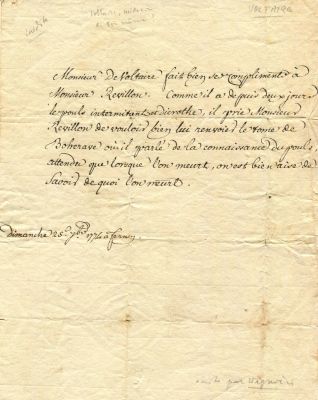 inédite
Voltaire, médecin
VOLTAIRE
Monsieur de Voltaire fait bien ses compliments à
Monsieur Revillon. Comme il a depuis deux jours
le pouls intermitant et dicrothe, il prie Monsieur
Revillon de vouloir bien lui renvoier le tome de
Boherave où il parle de la connaissance du pouls,
attendu que lorsque l'on meurt, on est bien aise de
Savoir de quoi l'on meurt.
Dimanche 25e 7bre 1774 à ferney
écrite par Wagnière